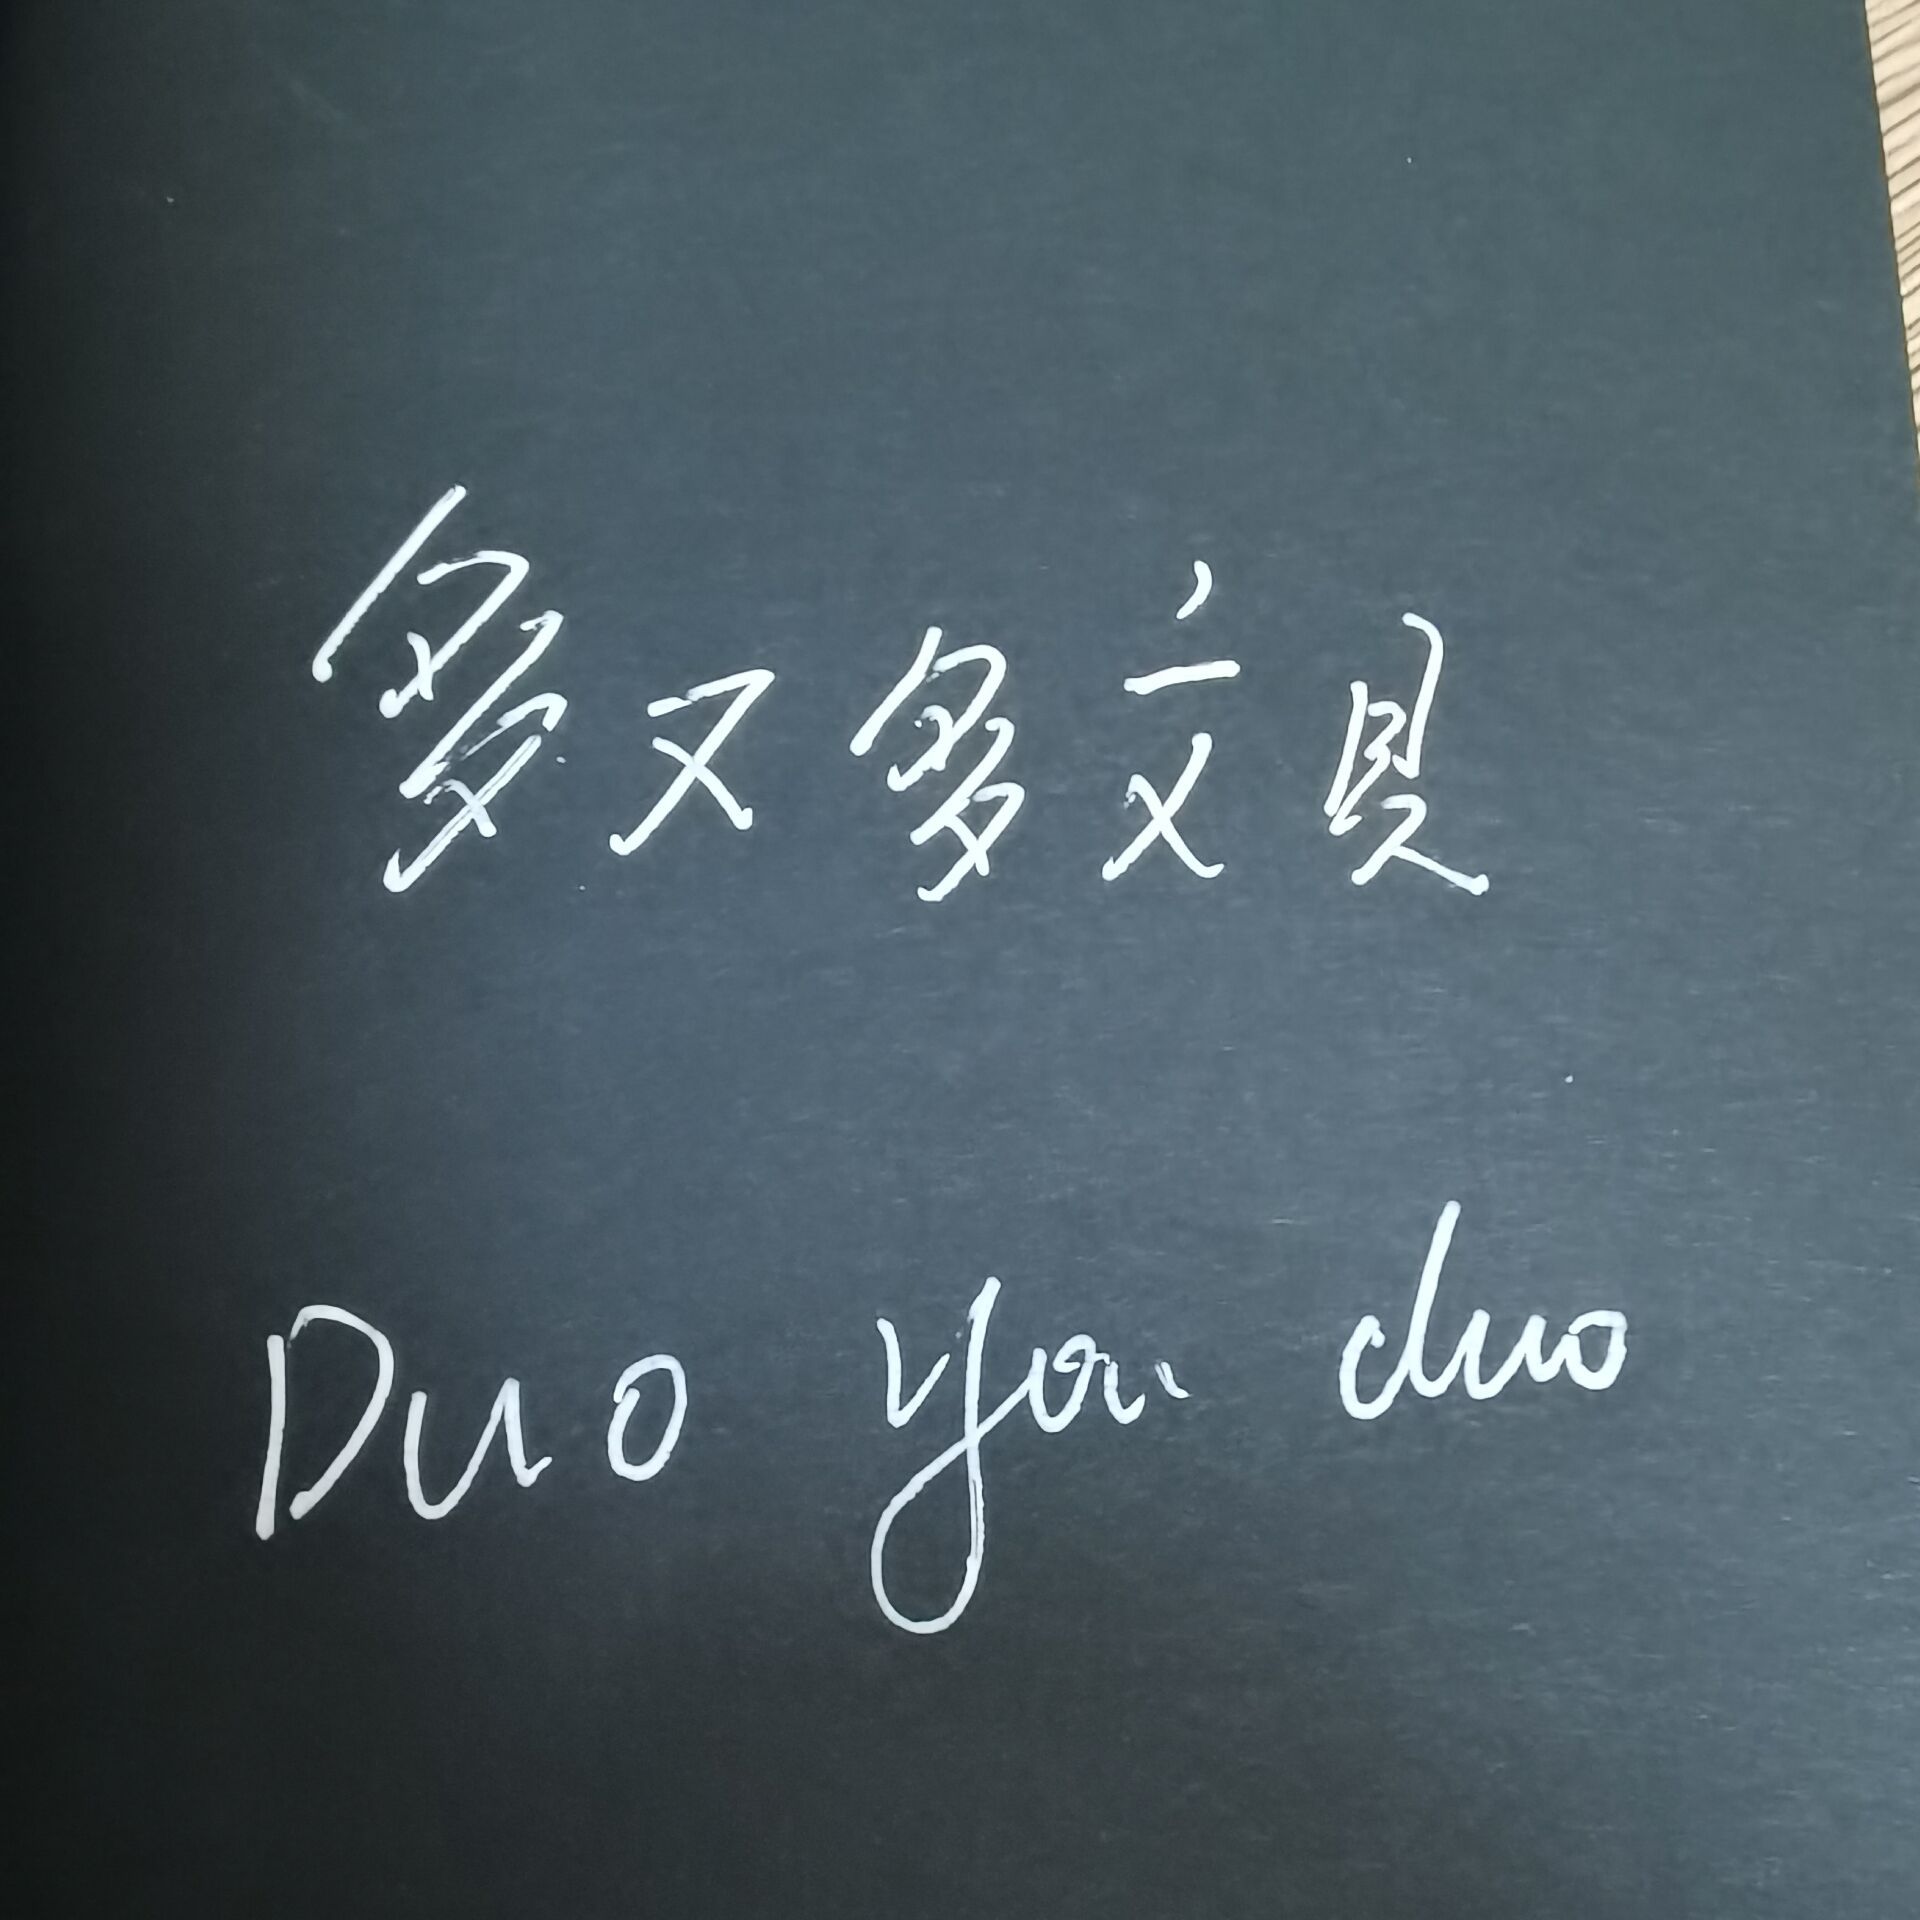 多又多文具
Duo you duo